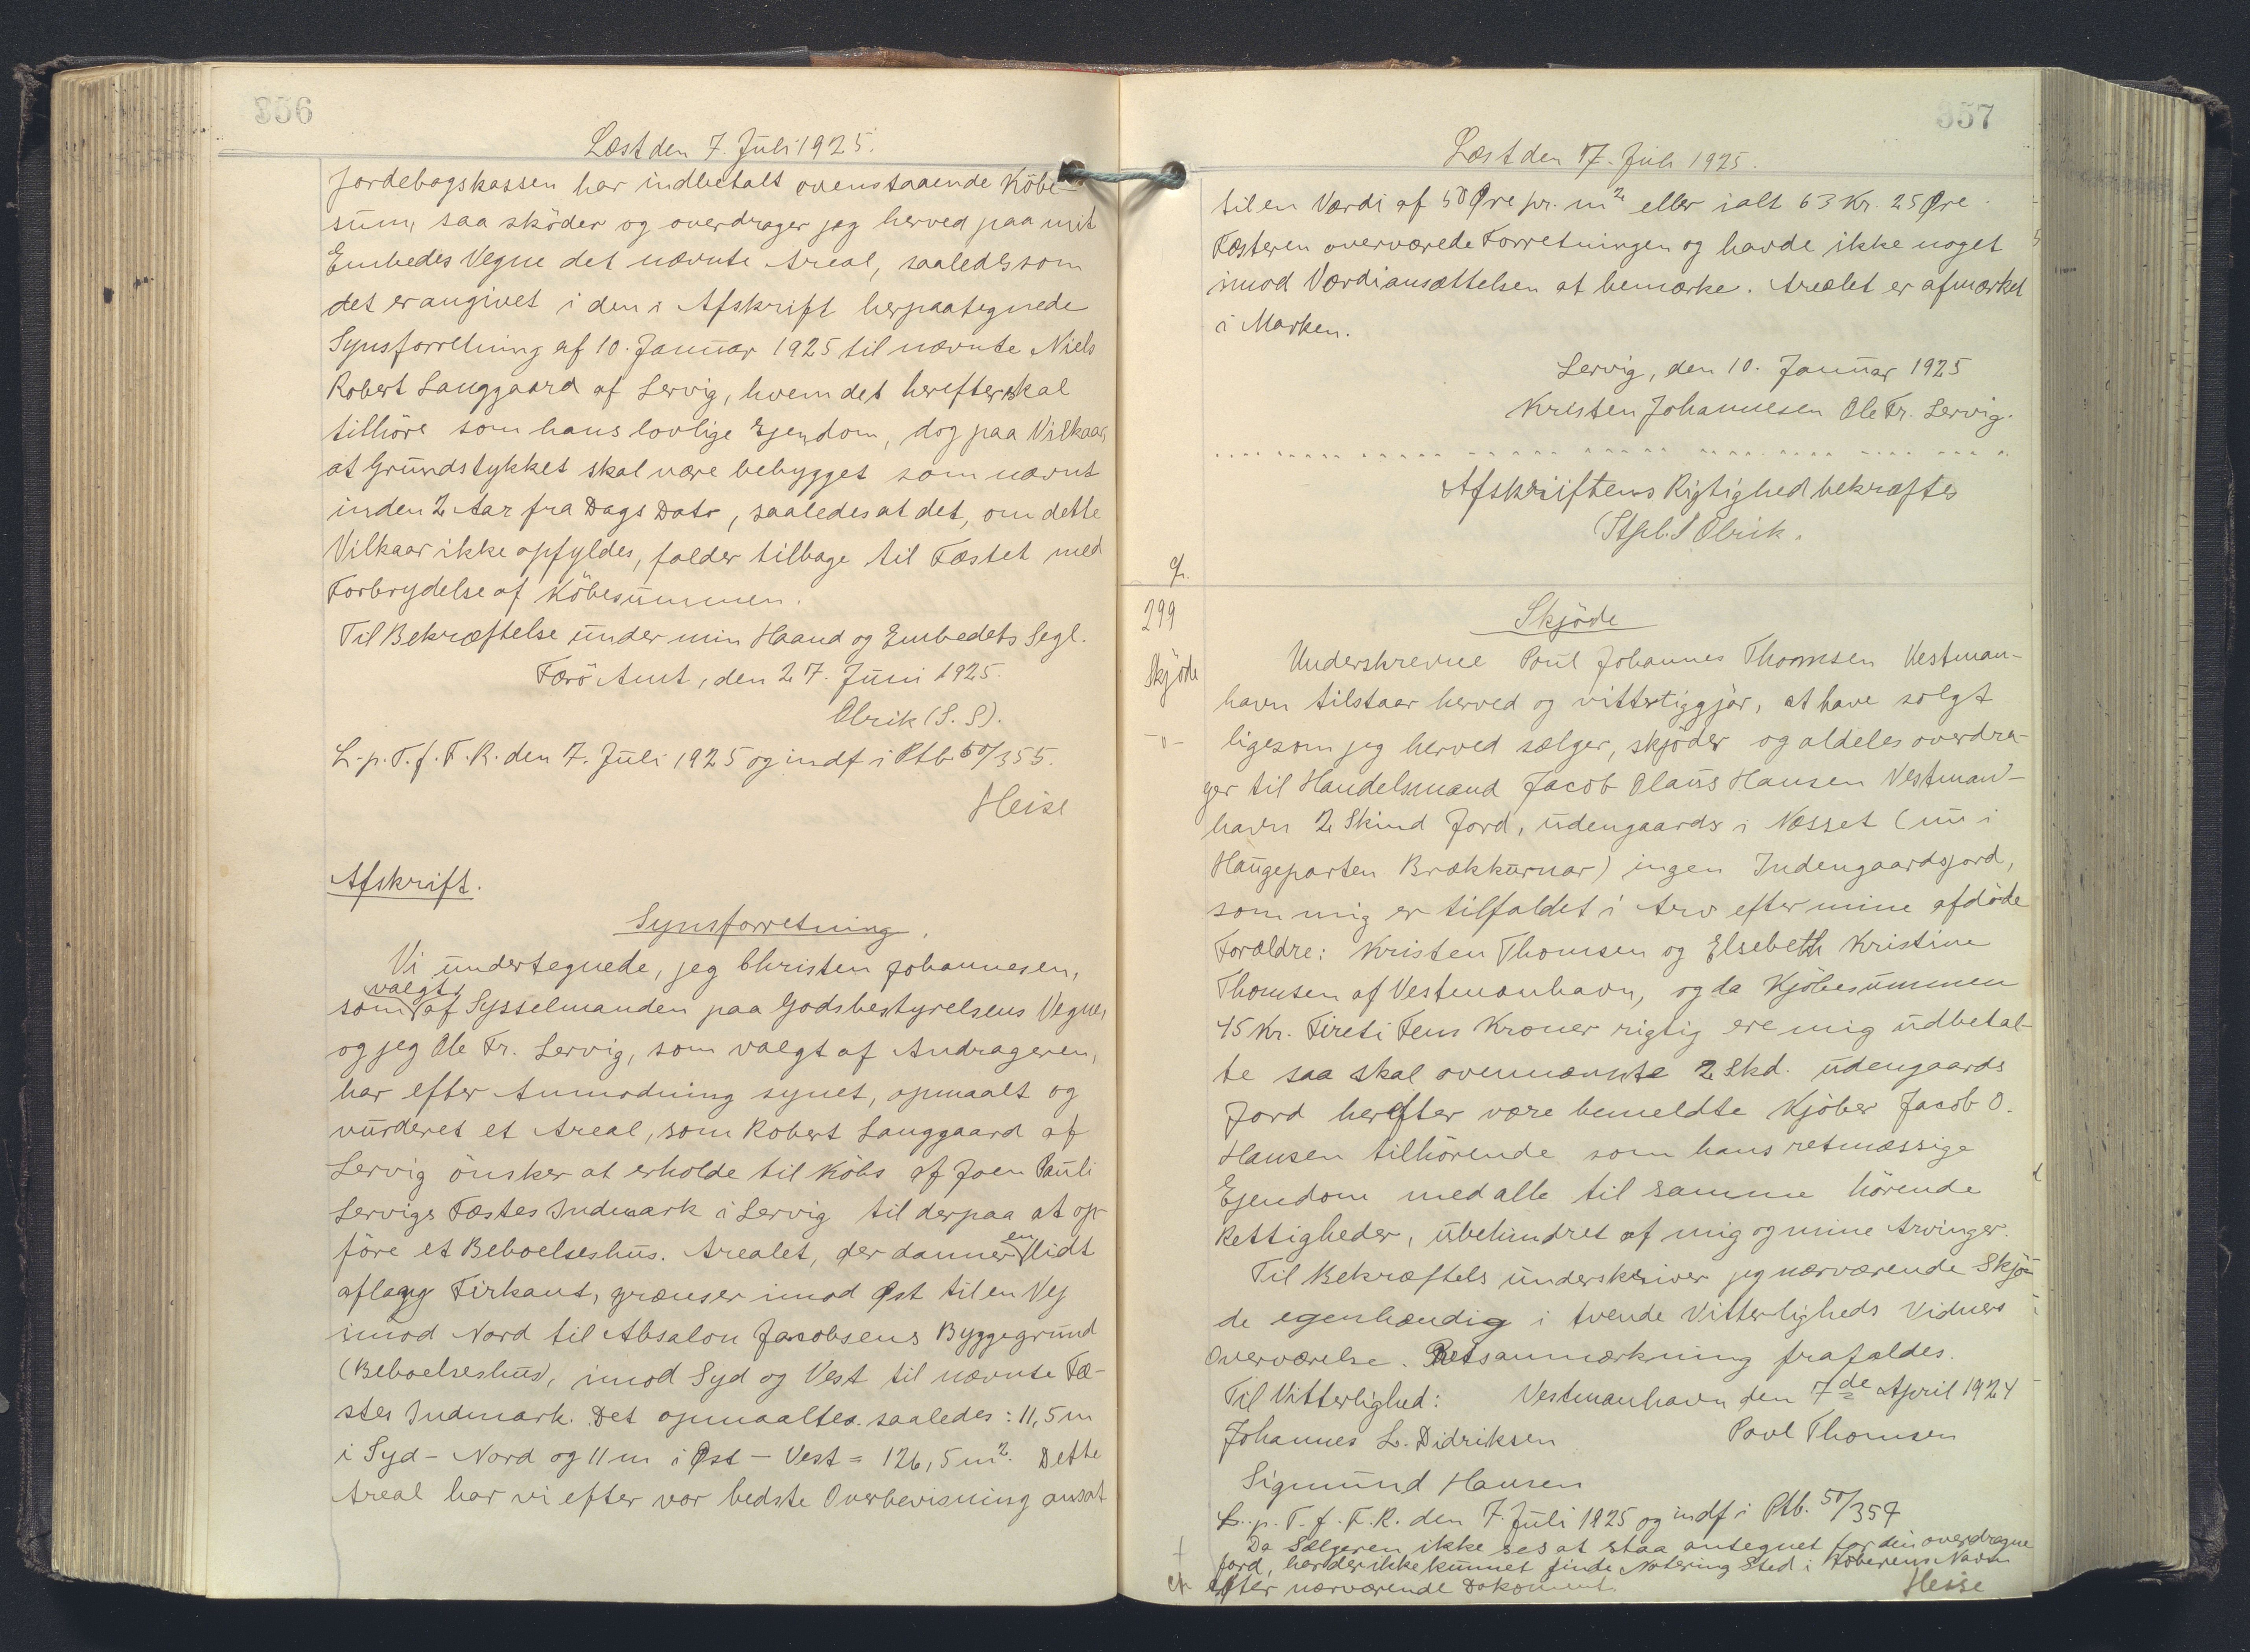 356
Læst den 7. Juli 1925.
Jordebogskassen har indbetalt ovenstaaende Købe-
sum, saa skøder og overdrager jeg herved paa mit
Embedes Vegne det nævnte Areal, saaledes som
det er angivet i den i Afskrift herpaategnede
Synsforretning af 10. Januar 1925 til nævnte Niels
Robert Langgaard af Lervig, hvem det herefter skal
tilhöre som hans lovlige Ejendom, dog paa Vilkaar,
at Grundstykket skal være bebygget som nævnt
inden 2 Aar fra Dags Dato, saaledes at det, om dette
Vilkaar ikke opfyldes, falder tilbage til Fæstet med
Forbrydelse af Köbesummen.
Til Bekræftelse under min Haand og Embedets Segl.
Færö Amt, den 27. Juni 1925.
Olrik (L. S).
L. p. T. f. F. R. den 7. Juli 1925 og indf i Ptb. 50/355.
Heise
Afskrift.
Synsforretning.
Vi undertegnede, jeg Christen Johannesen,
valgt
som af Sysselmanden paa Godsbestyrelsens Vegne,
og jeg Ole Fr. Lervig, som valgt af Andrageren,
har efter Anmodning synet, opmaalt og
vurderet et Areal, som Robert Langgaard af
Lervig önsker at erholde til Köbs af Joen Pauli
Lervigs Fæstes Indmark i Lervig til derpaa at op-
en
före et Beboelseshus. Arealet, der danner lidt
aflang Firkant, grænser imod Øst til en Vej
imod Nord til Absalon Jacobsens Byggegrund
(Beboelseshus), imod Syd og Vest til nævnte Fæ-
stes Indmark. Det opmaaltes saaledes: 11,5 m
i Syd - Nord og 11 m i Øst - Vest = 126,5 m². Dette
Areal har vi efter vor bedste Overbevisning ansat
357
Læst den 7. Juli 1925.
til en Værdi af 50 Øre pr. m² eller ialt 63 Kr. 25 Øre.
Fæsteren overværede Forretningen og havde ikke noget
imod Værdiansættelsen at bemærke. Arealet er afmærket
i Marken.
Lervig, den 10. Januar 1925
Kristen Johannesen Ole Fr. Lervig.
Afskriftens Rigtighed bekræftes
(Stpl.) Olrik.
299
Skjöde
Skjöde
Underskrevne Poul Johannes Thomsen Vestman-
havn tilstaar herved og vitterliggjør, at have solgt
-"- ligesom jeg herved sælger, skjöder og aldeles overdra-
ger til Handelsmand Jacob Olaus Hansen Vestman-
havn 2 Skind Jord, udengaards i Næsset (nu i
Haugeparten Brækkurnar) ingen Indengaardsjord,
som mig er tilfaldet i Arv efter mine afdöde
Forældre: Kristen Thomsen og Elsebeth Kristine
Thomsen af Vestmanhavn, og da Kjöbesummen
45 Kr. Fireti Fem Kroner rigtig ere mig udbetal-
te saa skal ovennævnte 2 Skd. udengaards
Jord herefter være bemeldte Kjöber Jacob O.
Hansen tilhörende som hans retmæssige
Ejendom med alle til samme hörende
Rettigheder, ubehindret af mig og mine Arvinger.
Til Bekræftels underskriver jeg nærværende Skjö-
de egenhændig i tvende Vitterligheds Vidners
Overværelse. Retsanmærkning frafaldes.
Til Vitterlighed: Vestmanhavn den 7de April 1924
Johannes L. Didriksen Poul Thomsen
Sigmund Hansen
L. p. T. f. F. R. den 7. Juli 1925 og indf i Ptb. 50/357
Da Sælgeren ikke ses at staa antegnet for den overdragne
Jord, har der ikke kunnet finde Notering Sted i Köberens Navn
efter nærværende Dokument. Heise